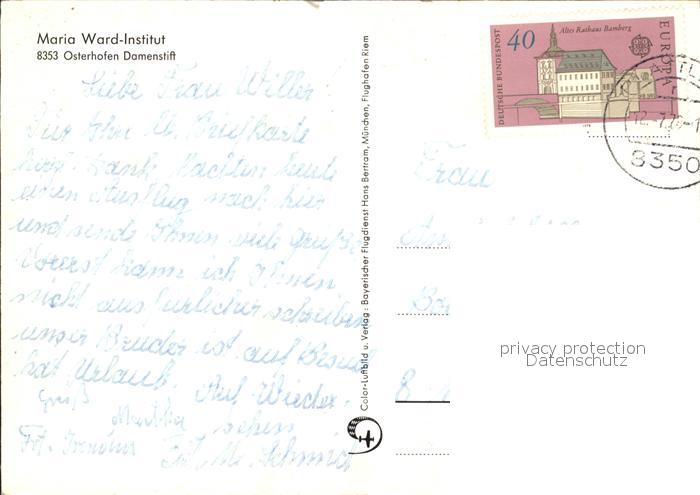 Maria Ward-Institut
8353 Osterhofen Damenstift
Liebe Frau Willer!
Für Ihre lb. Briefkarte
herzl. Dank. Machten heute
einen Ausflug nach hier
und sende Ihnen viele Grüße.
Vorerst kann ich Ihnen
nicht ausfürlicher schreiben
unser Bruder ist auf Besuch
hat Urlaub. Auf Wieder-
Gruß sehen
Martha
Frl. M. Schmid
Color-Luftbild u. Verlag: Bayerischer Flugdienst Hans Bertram, München, Flughafen Riem
DEUTSCHE BUNDESPOST
40
Altes Rathaus Bamberg
EUROPA
8350
Frau
privacy protection
Datenschutz